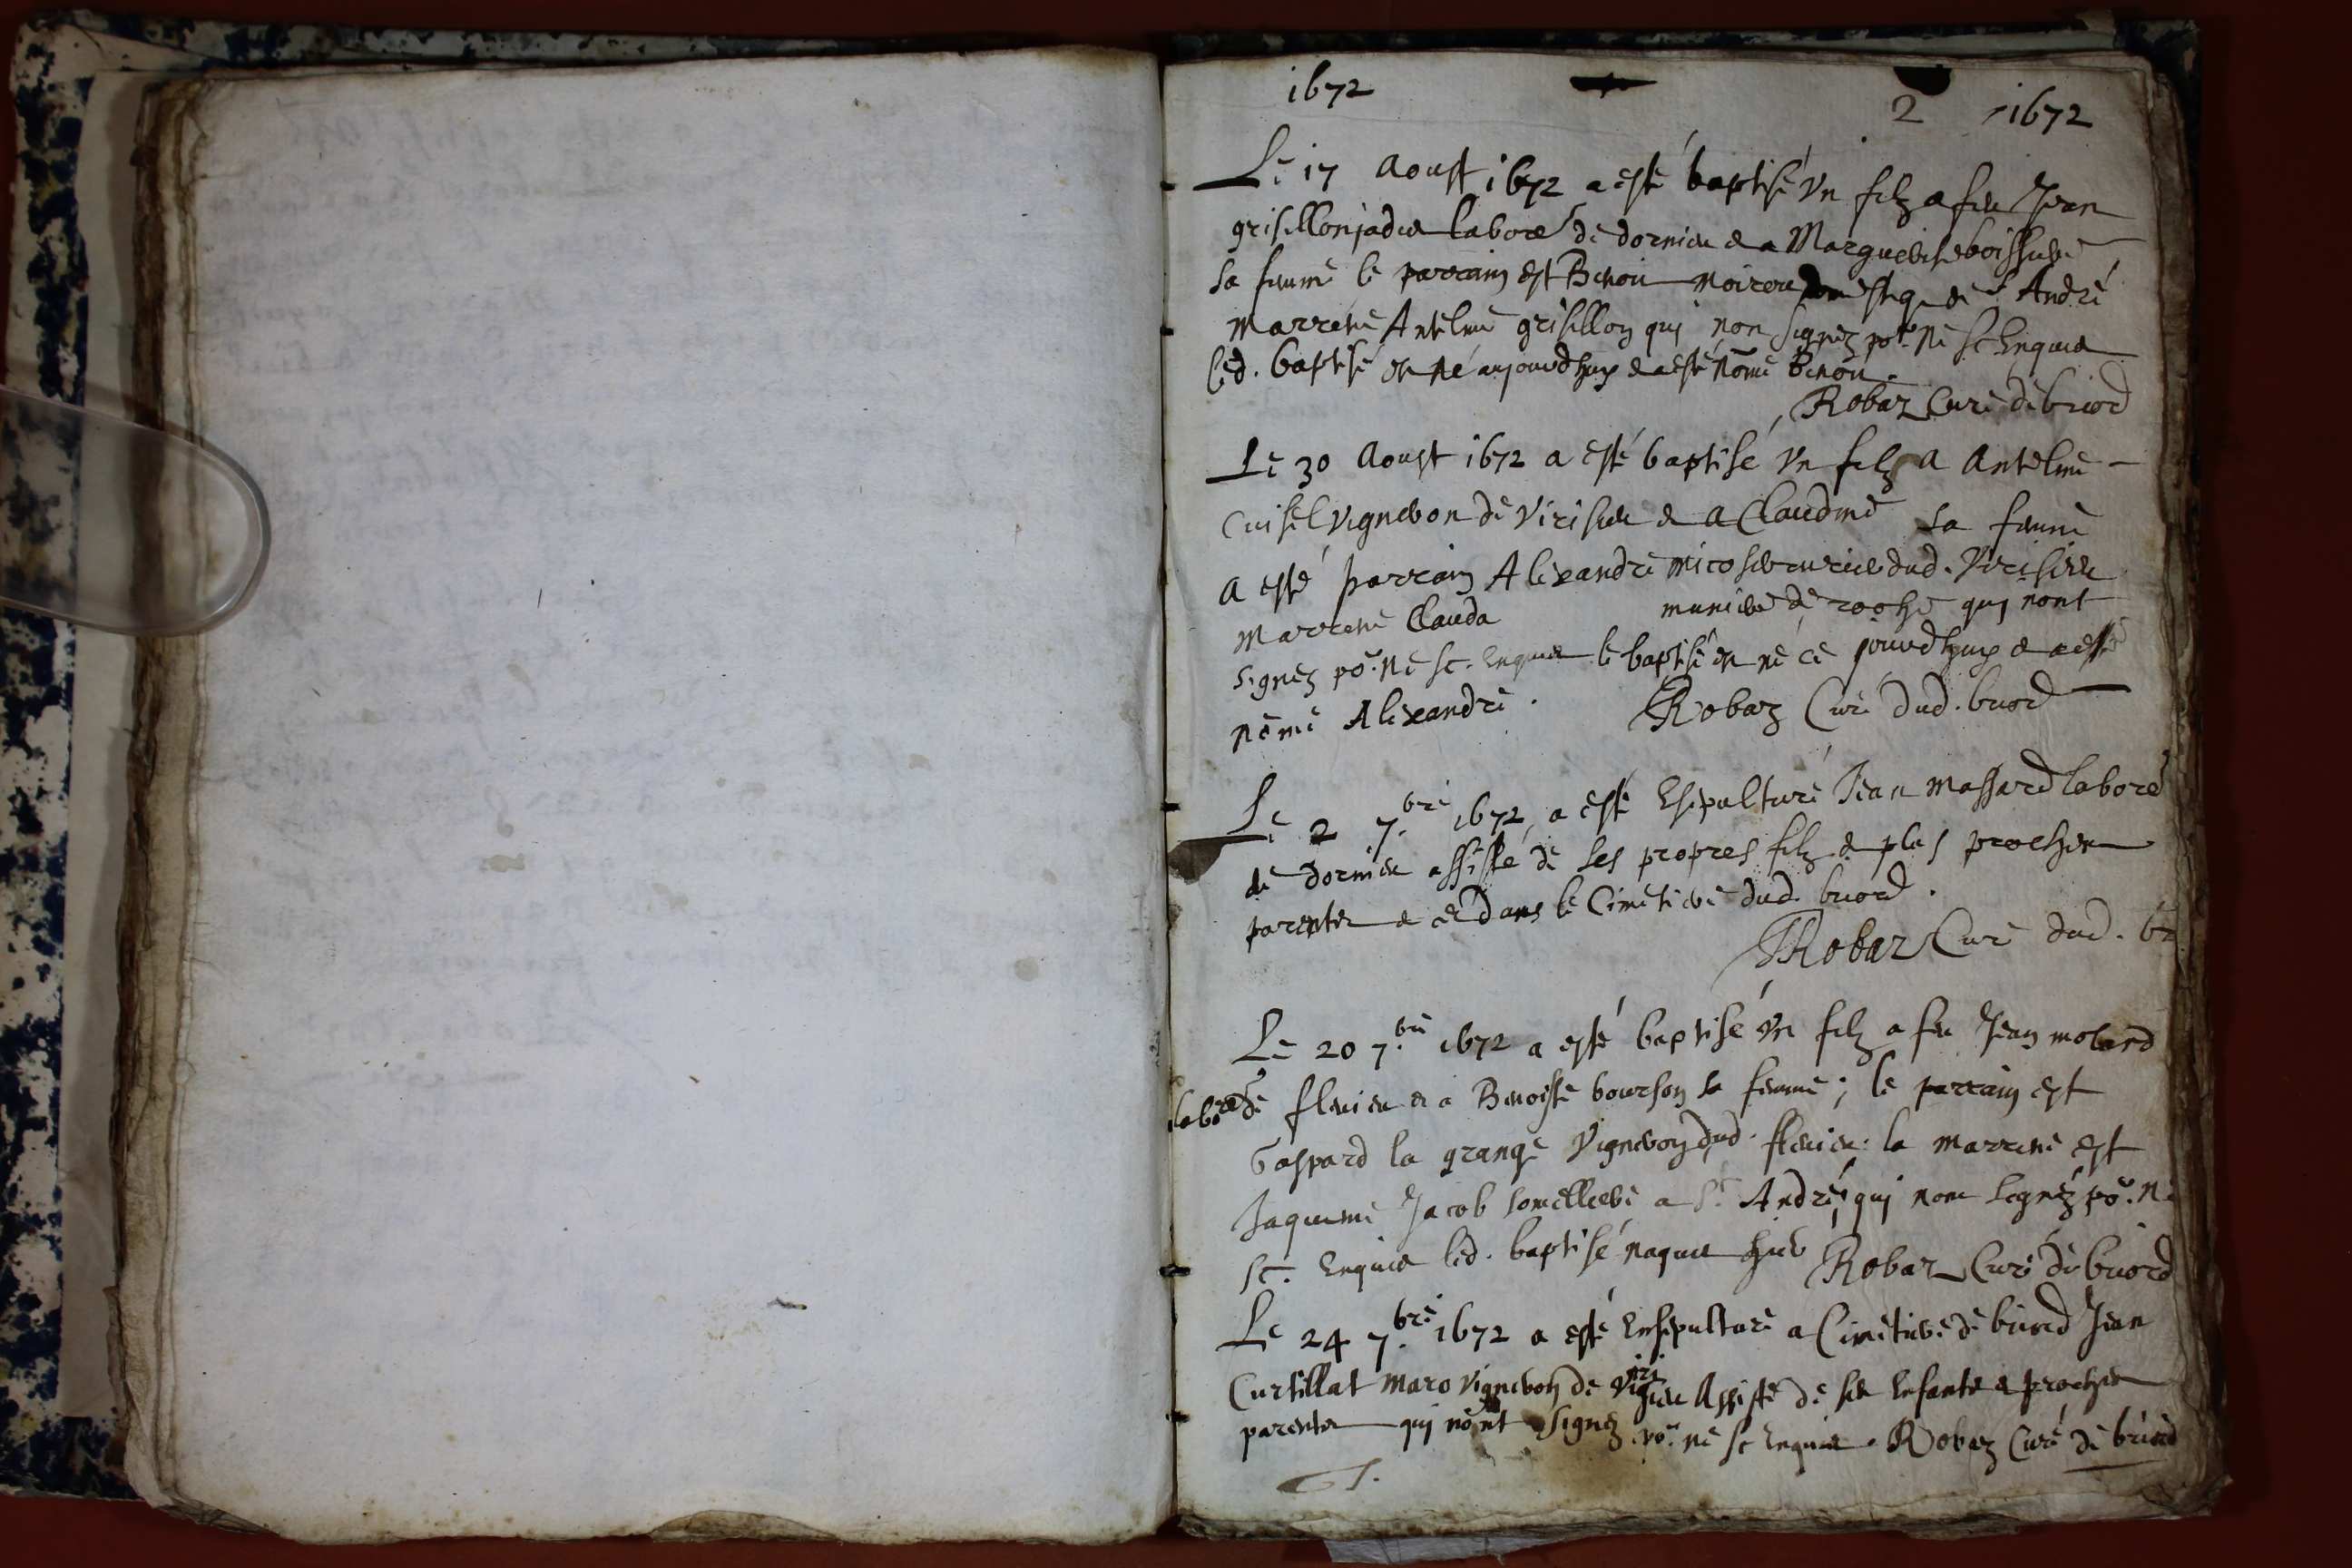 1672
2 1672
Le 17 Aoust 1672 a esté baptisé Vn filz a feu Jean
grisellon jadis labore^r de dornieu & a Marguerite boissiere
sa feme le parrain est Benoit de S^t André
marrene Antelme grisellon qui non signez po^r ne sc. Enquis
led. baptisé est né aujourdhuy & a esté nōmé Benoit.
Robaz Curé de briord
Le 30 Aoust 1672 a esté baptisé Vn filz a Antelme
Cuisel vigneron de Virisieu & a Claudine sa feme
a esté parrain Alexandre dud. Virisieu
marrene Clauda de roche qui nont
signez po^r ne sc. enquis le baptisé est né ce jourdhuy & a esté
nōmé Alexandre. Robaz Curé dud. briord
Le 2 7.^bre 1672 a esté Esepulturé Jean massard labore^r
de dornieu assisté de ses propres filz & plus proches
parents & ce dans le Cimetiere dud. briord.
Robaz Curé dud. br
Le 20 7.^bre 1672 a esté baptisé Vn filz a feu Jean molard
labore^r de flevieu & a Benoiste bourson sa feme; le parrain est
Gaspard la grange Vigneron dud. flevieu. la marrene est
Jaqueme Jacob somelliere a S^t André, qui nont signéz po^r. ne
sc. Enquis led. baptisé naquit hier Robaz Curé de briord
Le 24 7.^bre 1672 a esté Ensepulturé a Cimetiere de briord Jean
Curtillat maro vigneron de Virisieu Assisté de ses Enfants & proches
parents qui nont signez po^r. ne sc enquis. Robaz Curé de briord